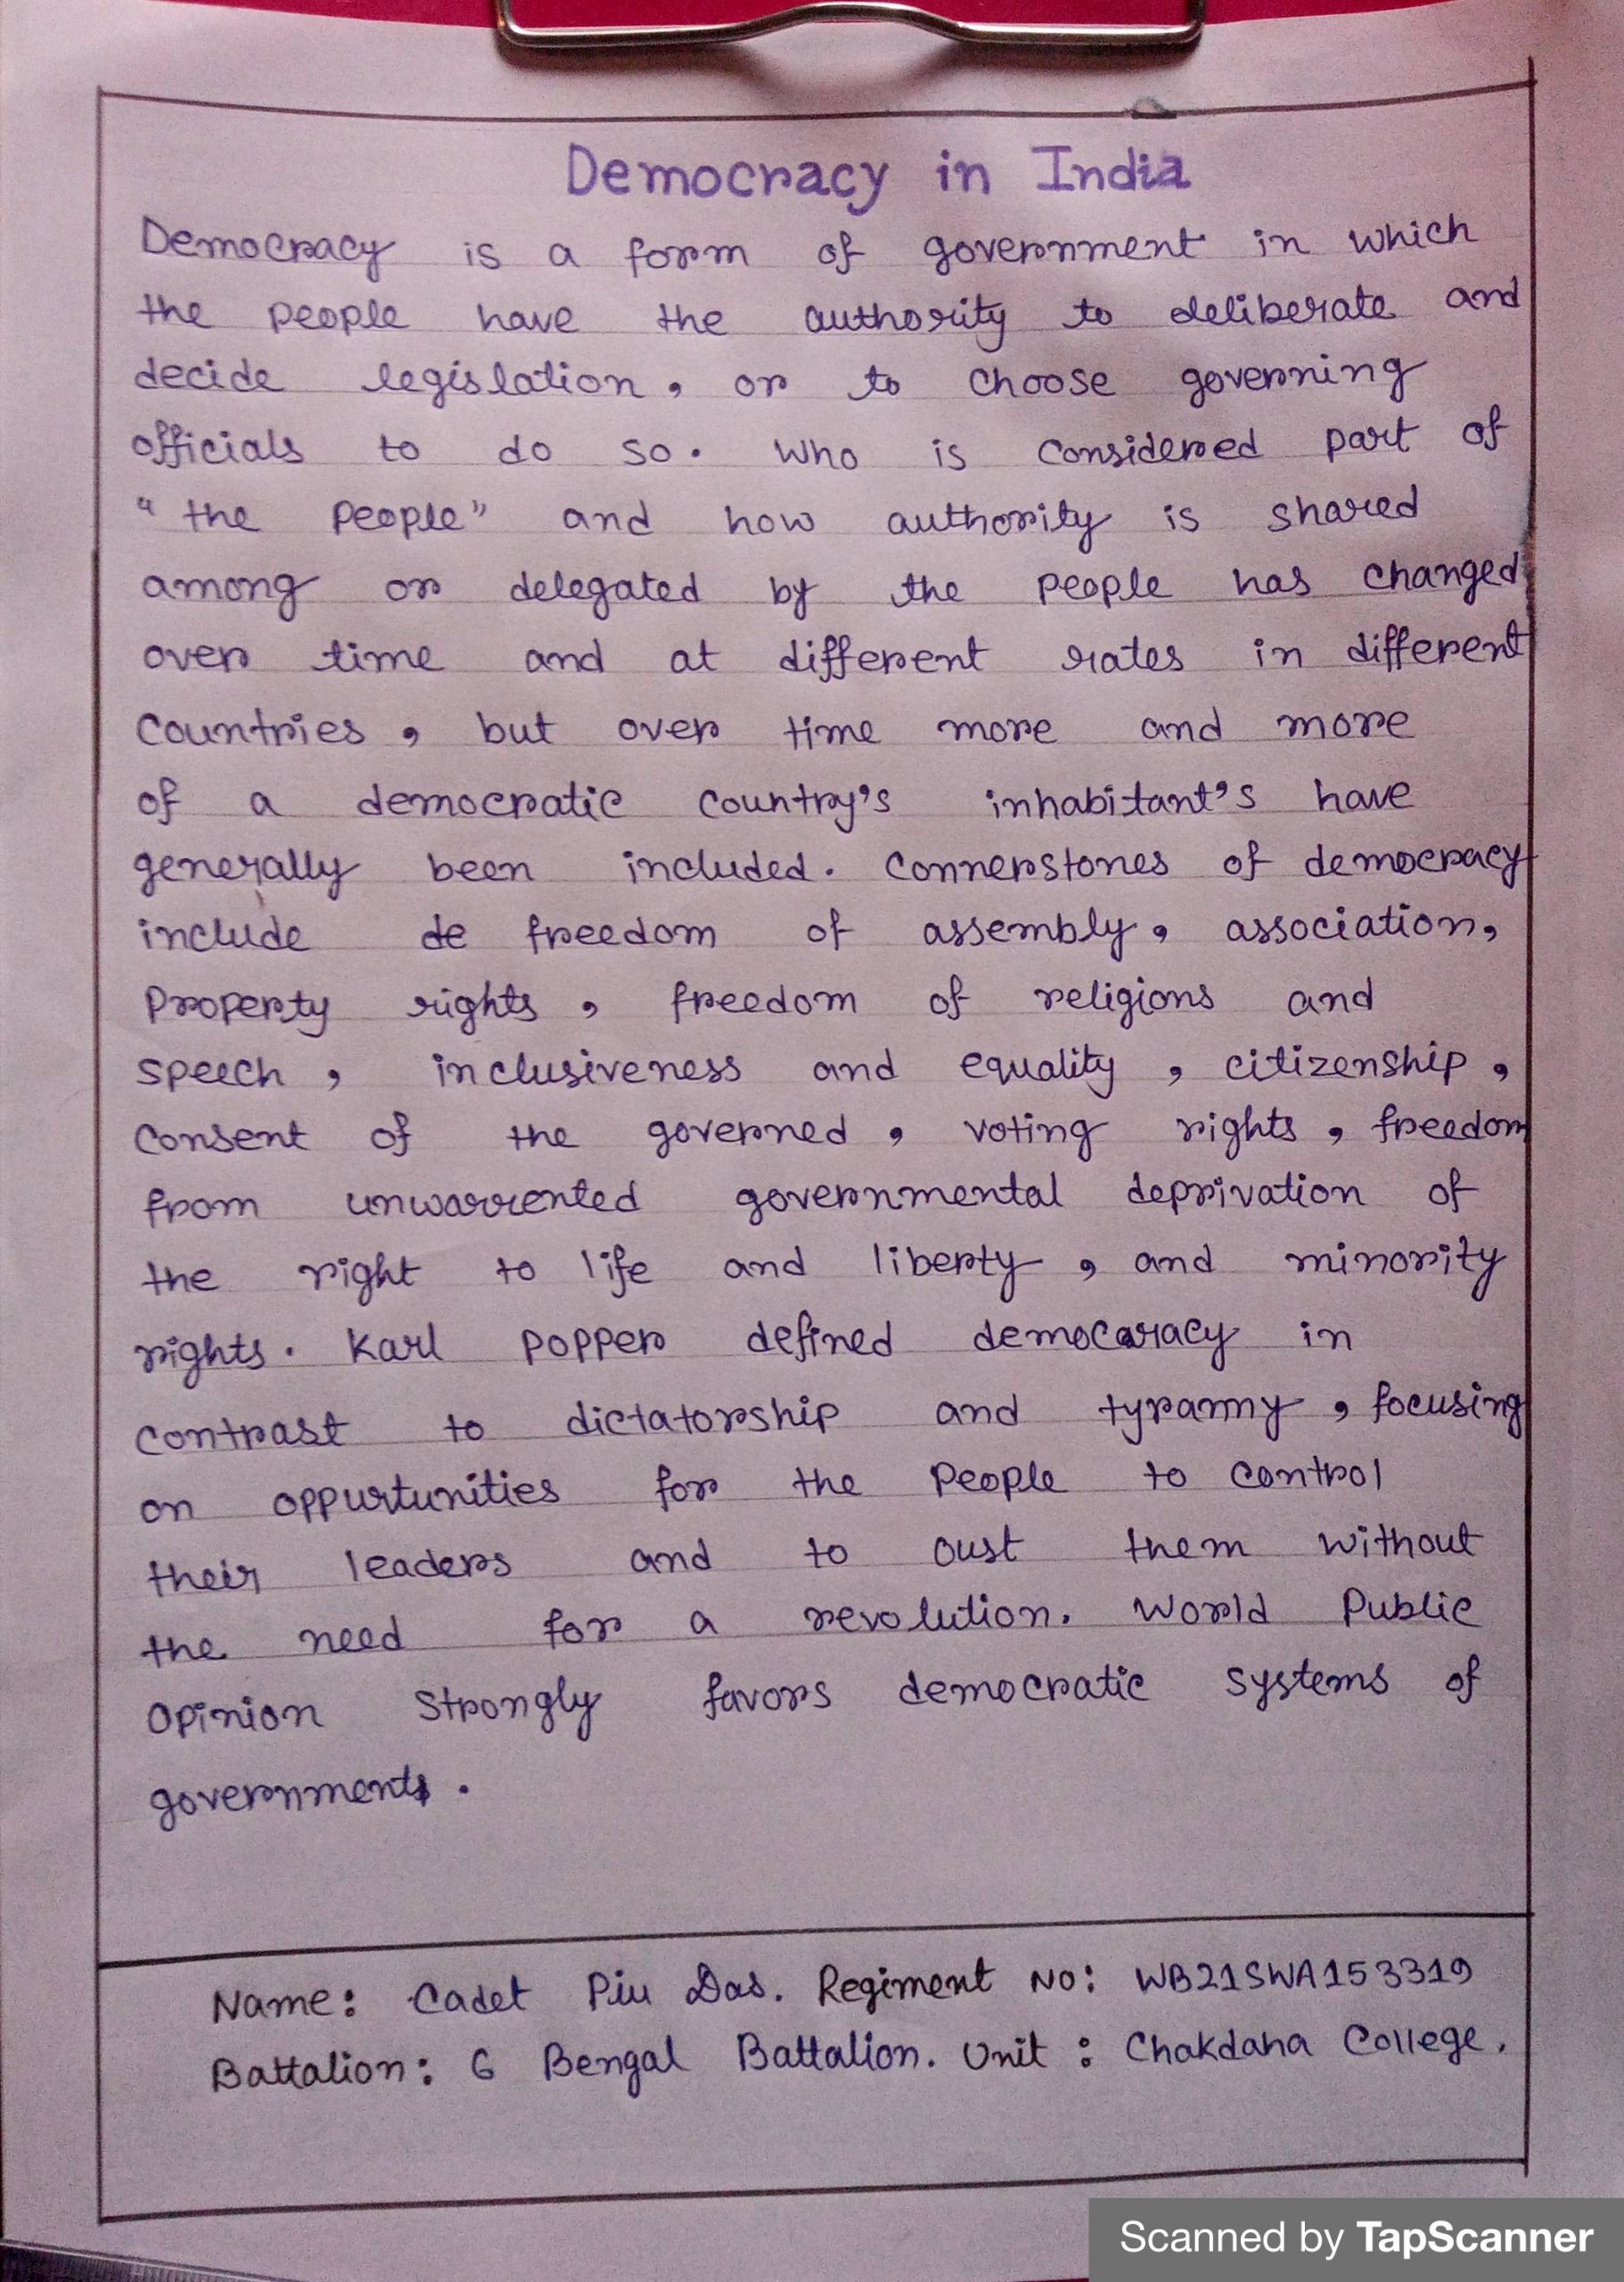 Democracy in India
Democracy is a form of government in which
the people have the authority to deliberate and
decide legislation, or to choose governing
officials to do so. Who is considered part of
"the people" and how authority is shared
among or delegated by the people has changed
over time and at different rates in different
countries, but over time more and more
of a democratic country's inhabitant's have
generally been included. Connerstones of democracy
include de freedom of assembly, association,
property rights, freedom of religions and
speech, inclusiveness and equality, citizenship,
consent of the governed, voting rights, freedom
from unwarrented governmental deprivation of
the right to life and liberty, and minority
rights. Karl popper defined democaracy in
contrast to dictatorship and tyranny, focusing
on oppurtunities for the people to control
their leaders and to oust them without
the need for a revolution. World Public
opinion strongly favors democratic systems of
governments.
Name: Cadet Piu Das. Regiment No: WB21SWA153319
Battalion: 6 Bengal Battalion. Unit: Chakdaha College.
Scanned by TapScanner